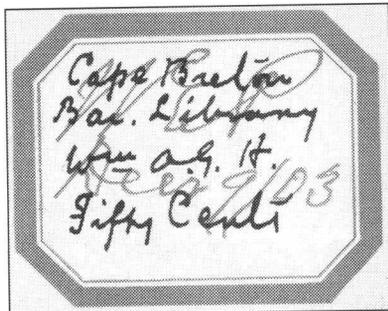 Cape Breton
Bar. Library
Wm A.G. H.
9/03
Fifty Cents